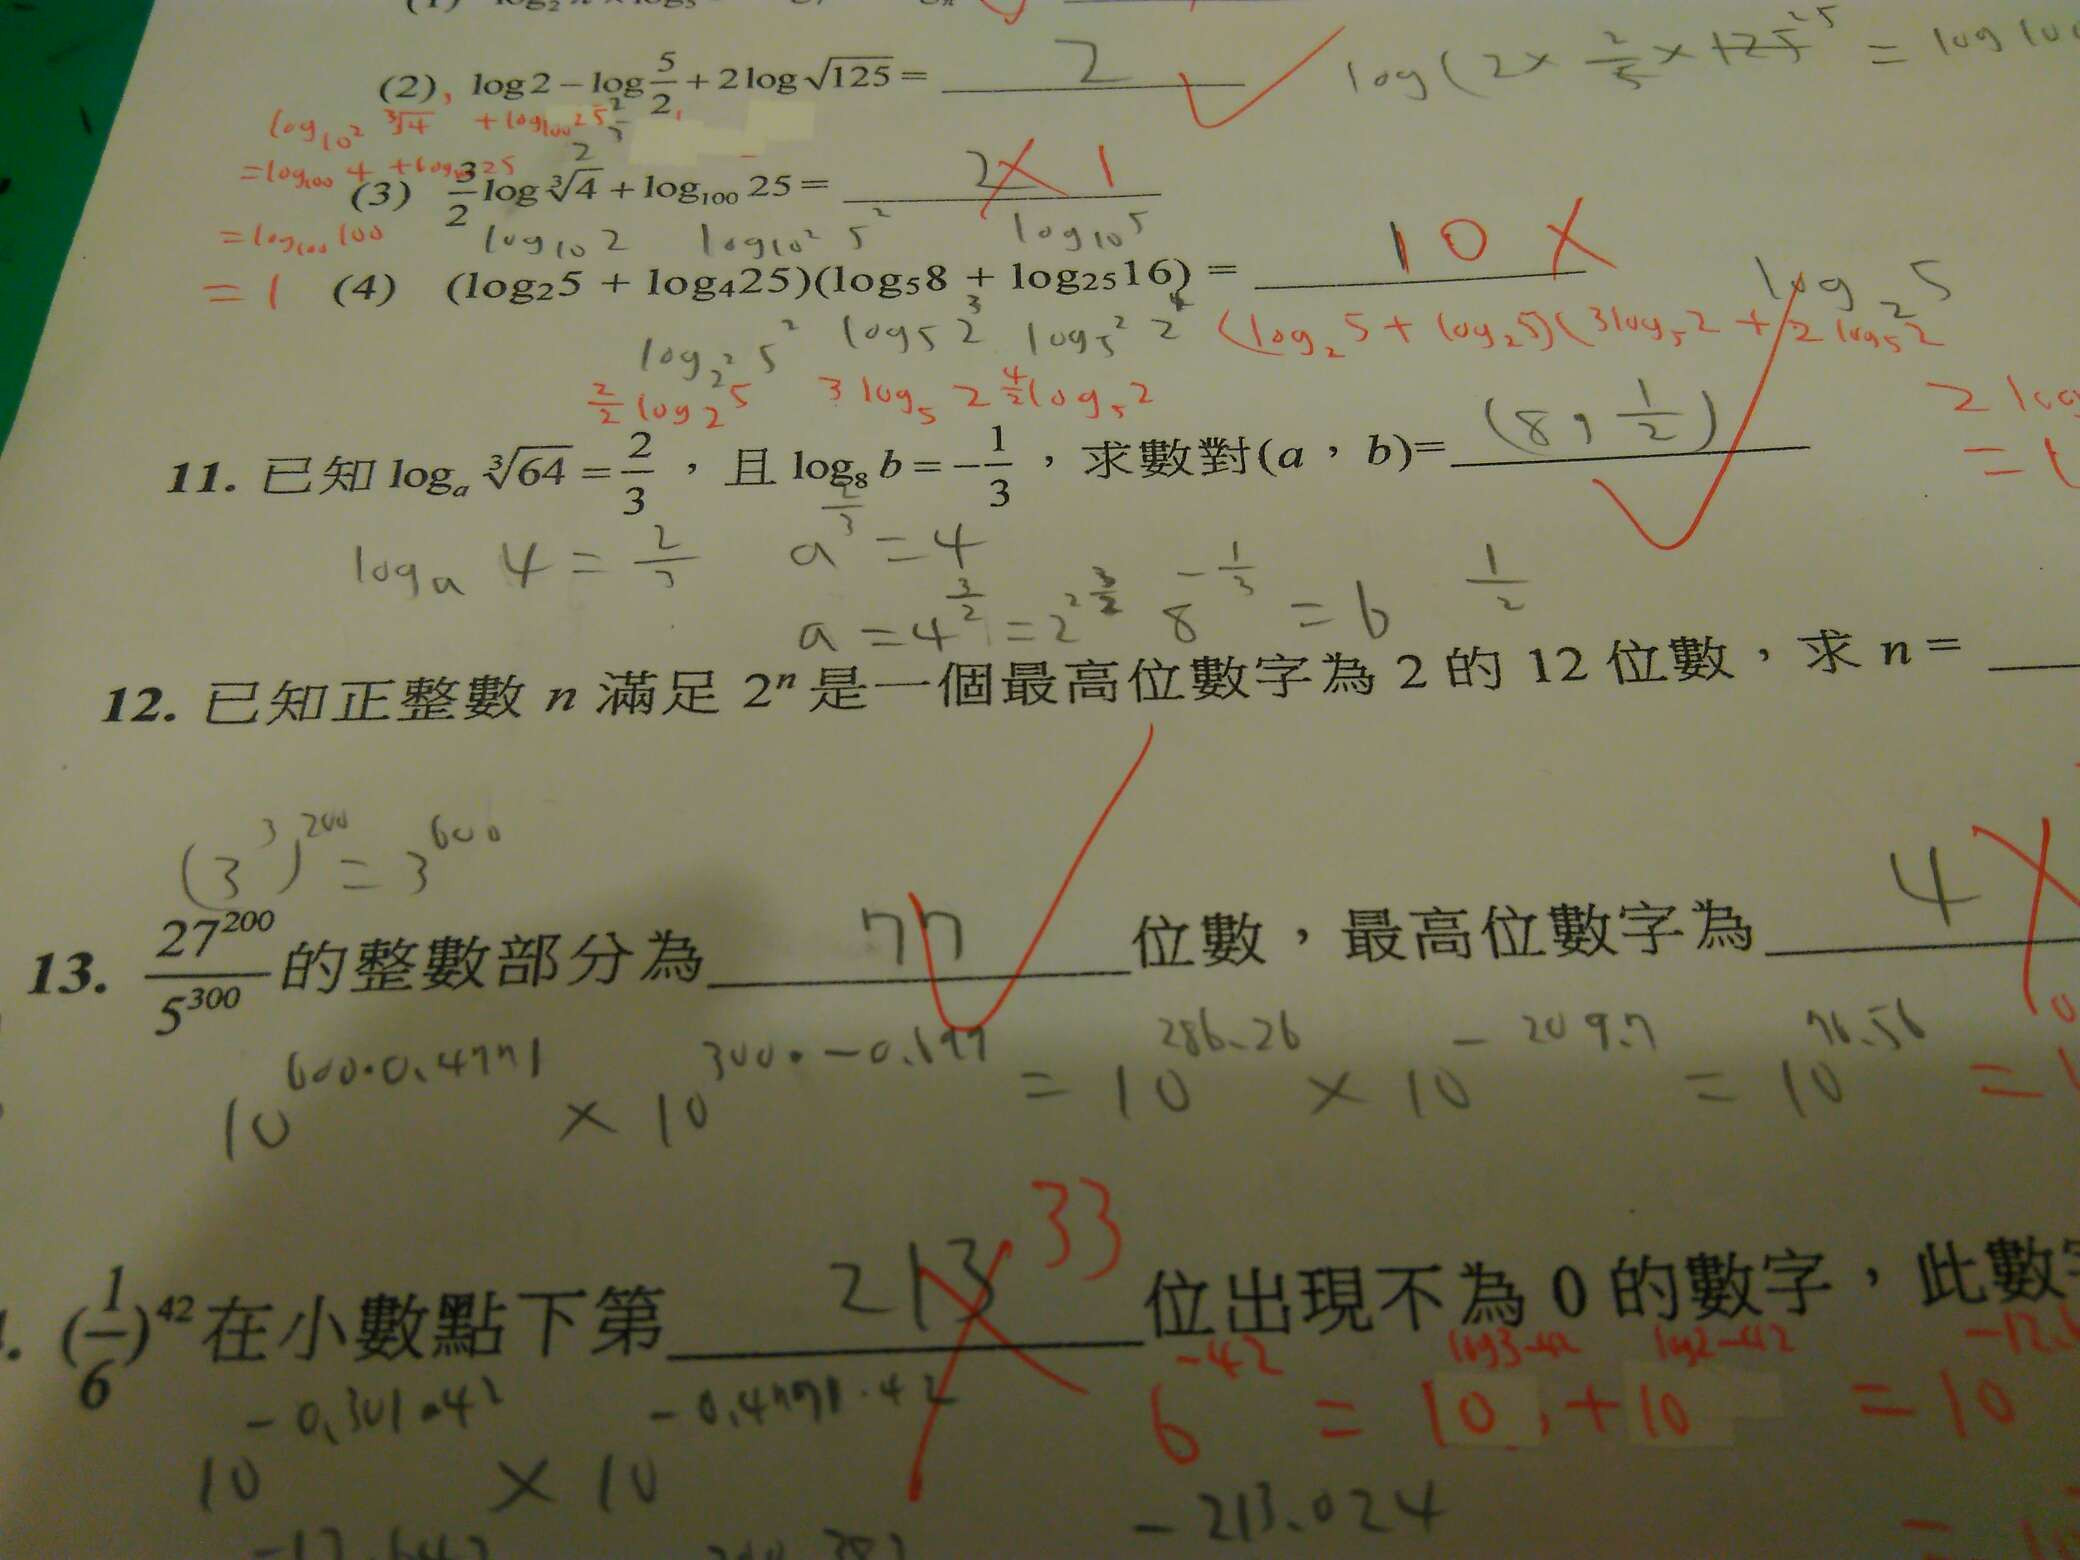 (2), log2 − log 5/2 + 2log√125 = 2
log(2× 2/5 ×125 = log 100
log₁₀² ∛4 + log₁₀₀25
= log₁₀₀ 4 + log₁₀₀25
(3) 3/2 log ∛4 + log₁₀₀ 25 = 2 1
= log₁₀₀ 100
log₁₀ 2 log₁₀² 5² log₁₀5
= 1 (4) (log₂5 + log₄25)(log₅8 + log₂₅16) = 10
log₂5
log₂² 5² log₅ 2³ log₅² 2⁴ (log₂5 + log₂5)(3log₅2 + 2log₅2
2/2 log₂5 3 log₅ 2 4/2 log₅2
11. 已知 logₐ ∛64 = 2/3 ,且 log₈ b = −1/3 ,求數對(a,b)= (8, 1/2)
logₐ 4 = 2/3 a^(2/3) = 4
a = 4^(3/2) = 2^(2·3/2) 8^(−1/3) = b 1/2
12. 已知正整數 n 滿足 2ⁿ 是一個最高位數字為 2 的 12 位數,求 n =
(3³)²⁰⁰ = 3⁶⁰⁰
13. 27²⁰⁰/5³⁰⁰ 的整數部分為 77 位數,最高位數字為 4
10^(600·0.4771) × 10^(300·−0.699) = 10^286.26 × 10^−209.7 = 10^76.56 =
(1/6)⁴² 在小數點下第 213 33 位出現不為 0 的數字,此數
10^(−0.301·42) × 10^(−0.4771·42)
6^−42 = 10^(log3−42) + 10^(log2−42) = 10
−213.024